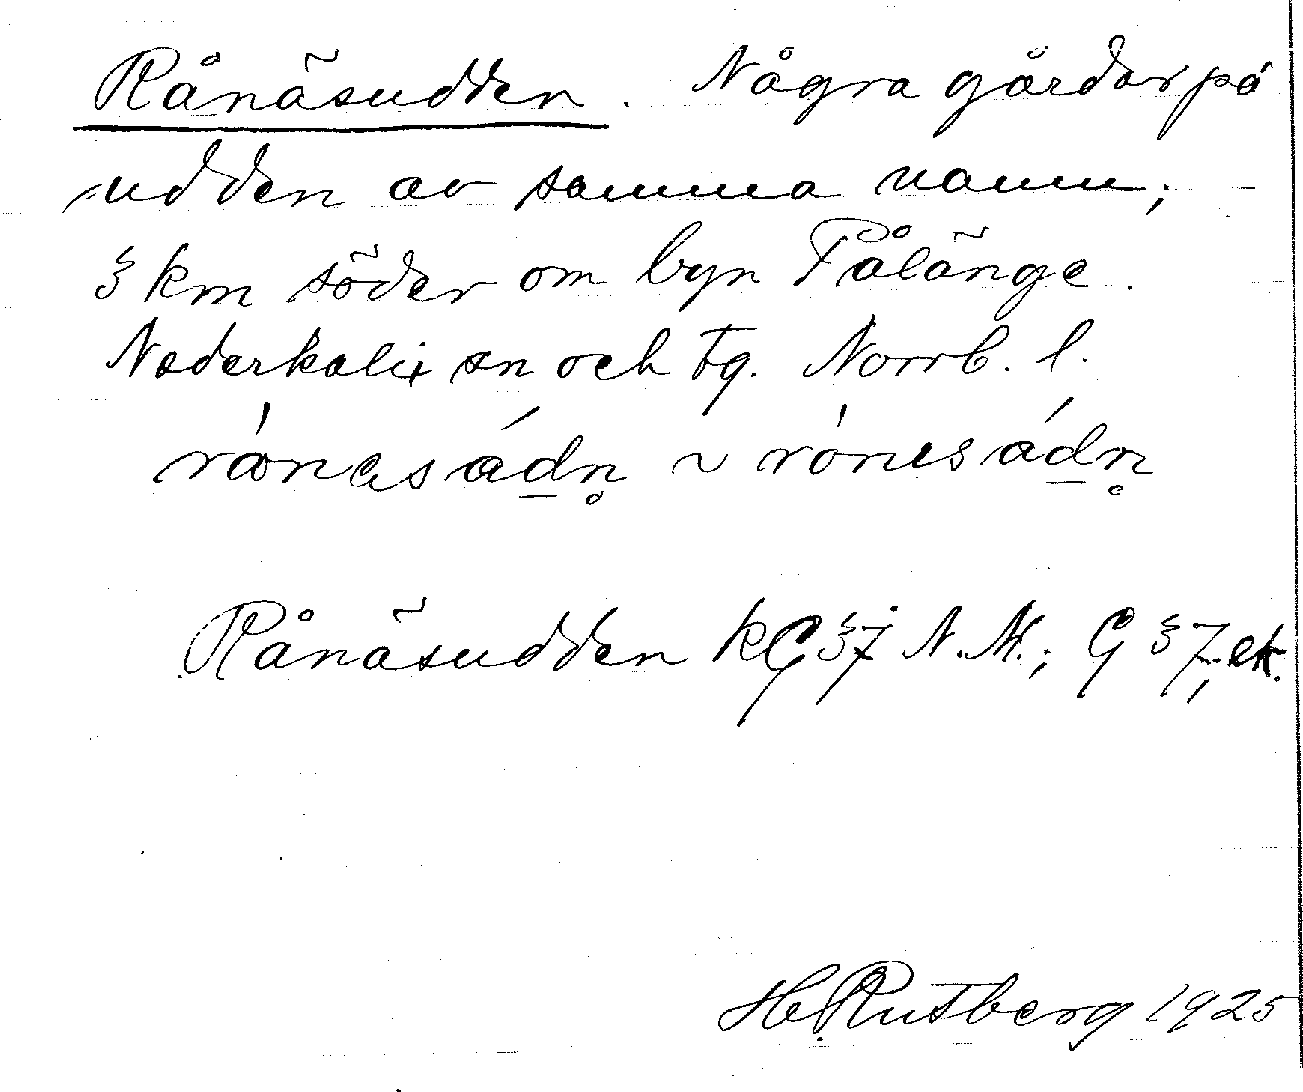 Rånäsudden. Några gårdar på
udden av samma namn;
3 km söder om byn Pålänge.
Nederkalix sn och tg. Norrb. l.
rånɛsádn̥ ~ rónɛsádn̥
Rånäsudden k G 37 N.M.; G 37, ek.
H. Rutberg 1925